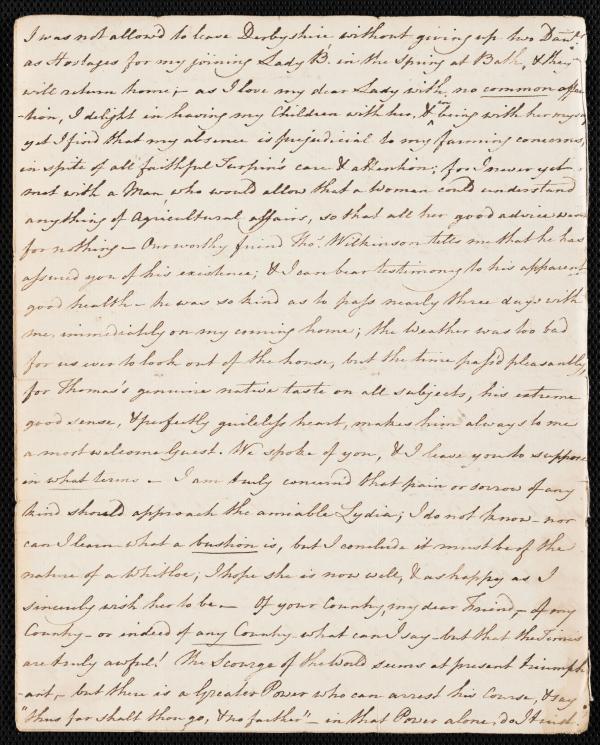 I was not allowed to leave Derbyshire without giving up two Daurs
as Hostages for my joining Lady B. in the Spring at Bath, & they
will return home; - as I love my dear Lady with no common affec
-tion, I delight in having my Children with her, & in being with her myself
yet I find that my absence is prejudicial to my farming concerns,
in spite of all faithful Turpin's care & attention; for I never yet
met with a Man who would allow that a Woman could understand
anything of Agricultural affairs, so that all her good advice went
for nothing - Our worthy friend Thos. Wilkinson tells me that he has
assured you of his existence; & I can bear testimony to his apparent
good health - he was so kind as to pass nearly three days with
me, immediately on my coming home; the Weather was too bad
for us ever to look out of the house, but the time pass'd pleasantly,
for Thomas's genuine native taste on all subjects, his extreme
good sense, & perfectly guileless heart, makes him always to me
a most welcome Guest. We spoke of you, & I leave you to suppose
in what terms - I am truly concern'd that pain or sorrow of any
kind should approach the amiable Lydia; I do not know - nor
can I learn what a bustion is, but I conclude it must be of the
nature of a Whitloe; I hope she is now well, & as happy as I
sincerely wish her to be - Of your Country, my dear Friend, - of my
Country - or indeed of any Country what can I say - but that the Times
are truly awful! The Scourge of the World seems at present triumph
-ant, - but there is a Greater Power who can arrest his Course, & say
"thus far shalt thou go, & no farther" - in that Power alone, do I trust.